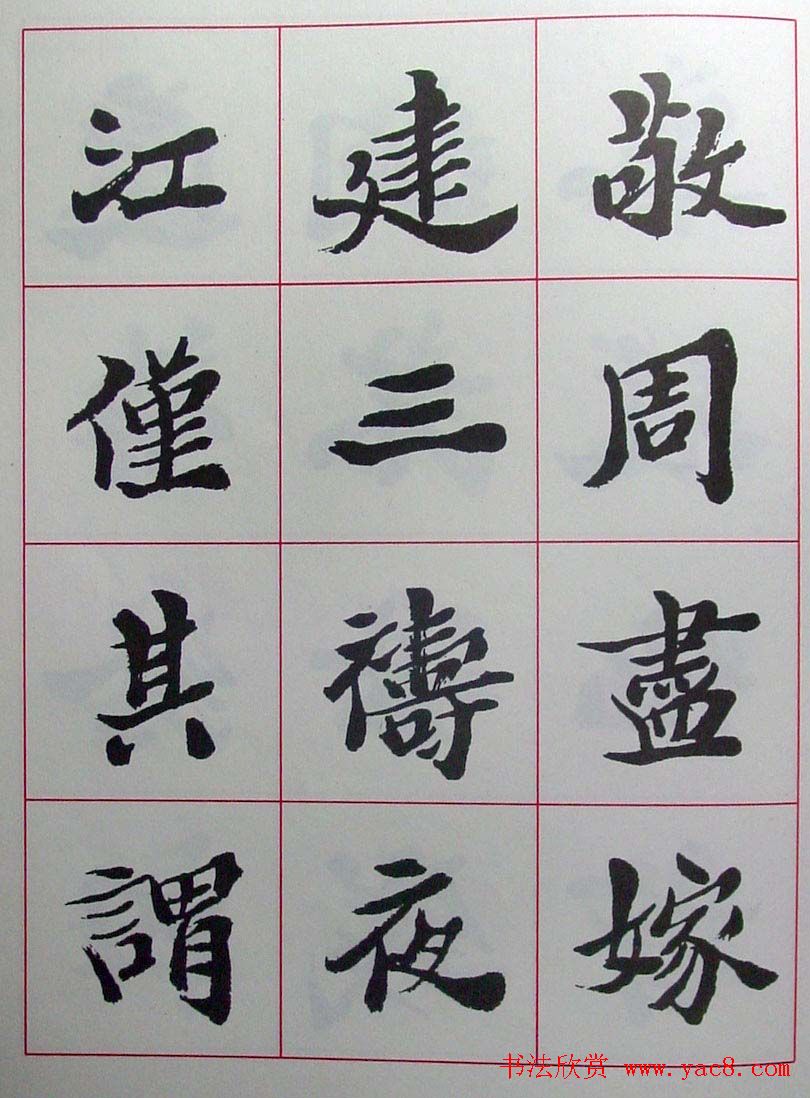 敬周盡嫁
建三禱夜
江僅其謂
书法欣赏 www.yac8.com